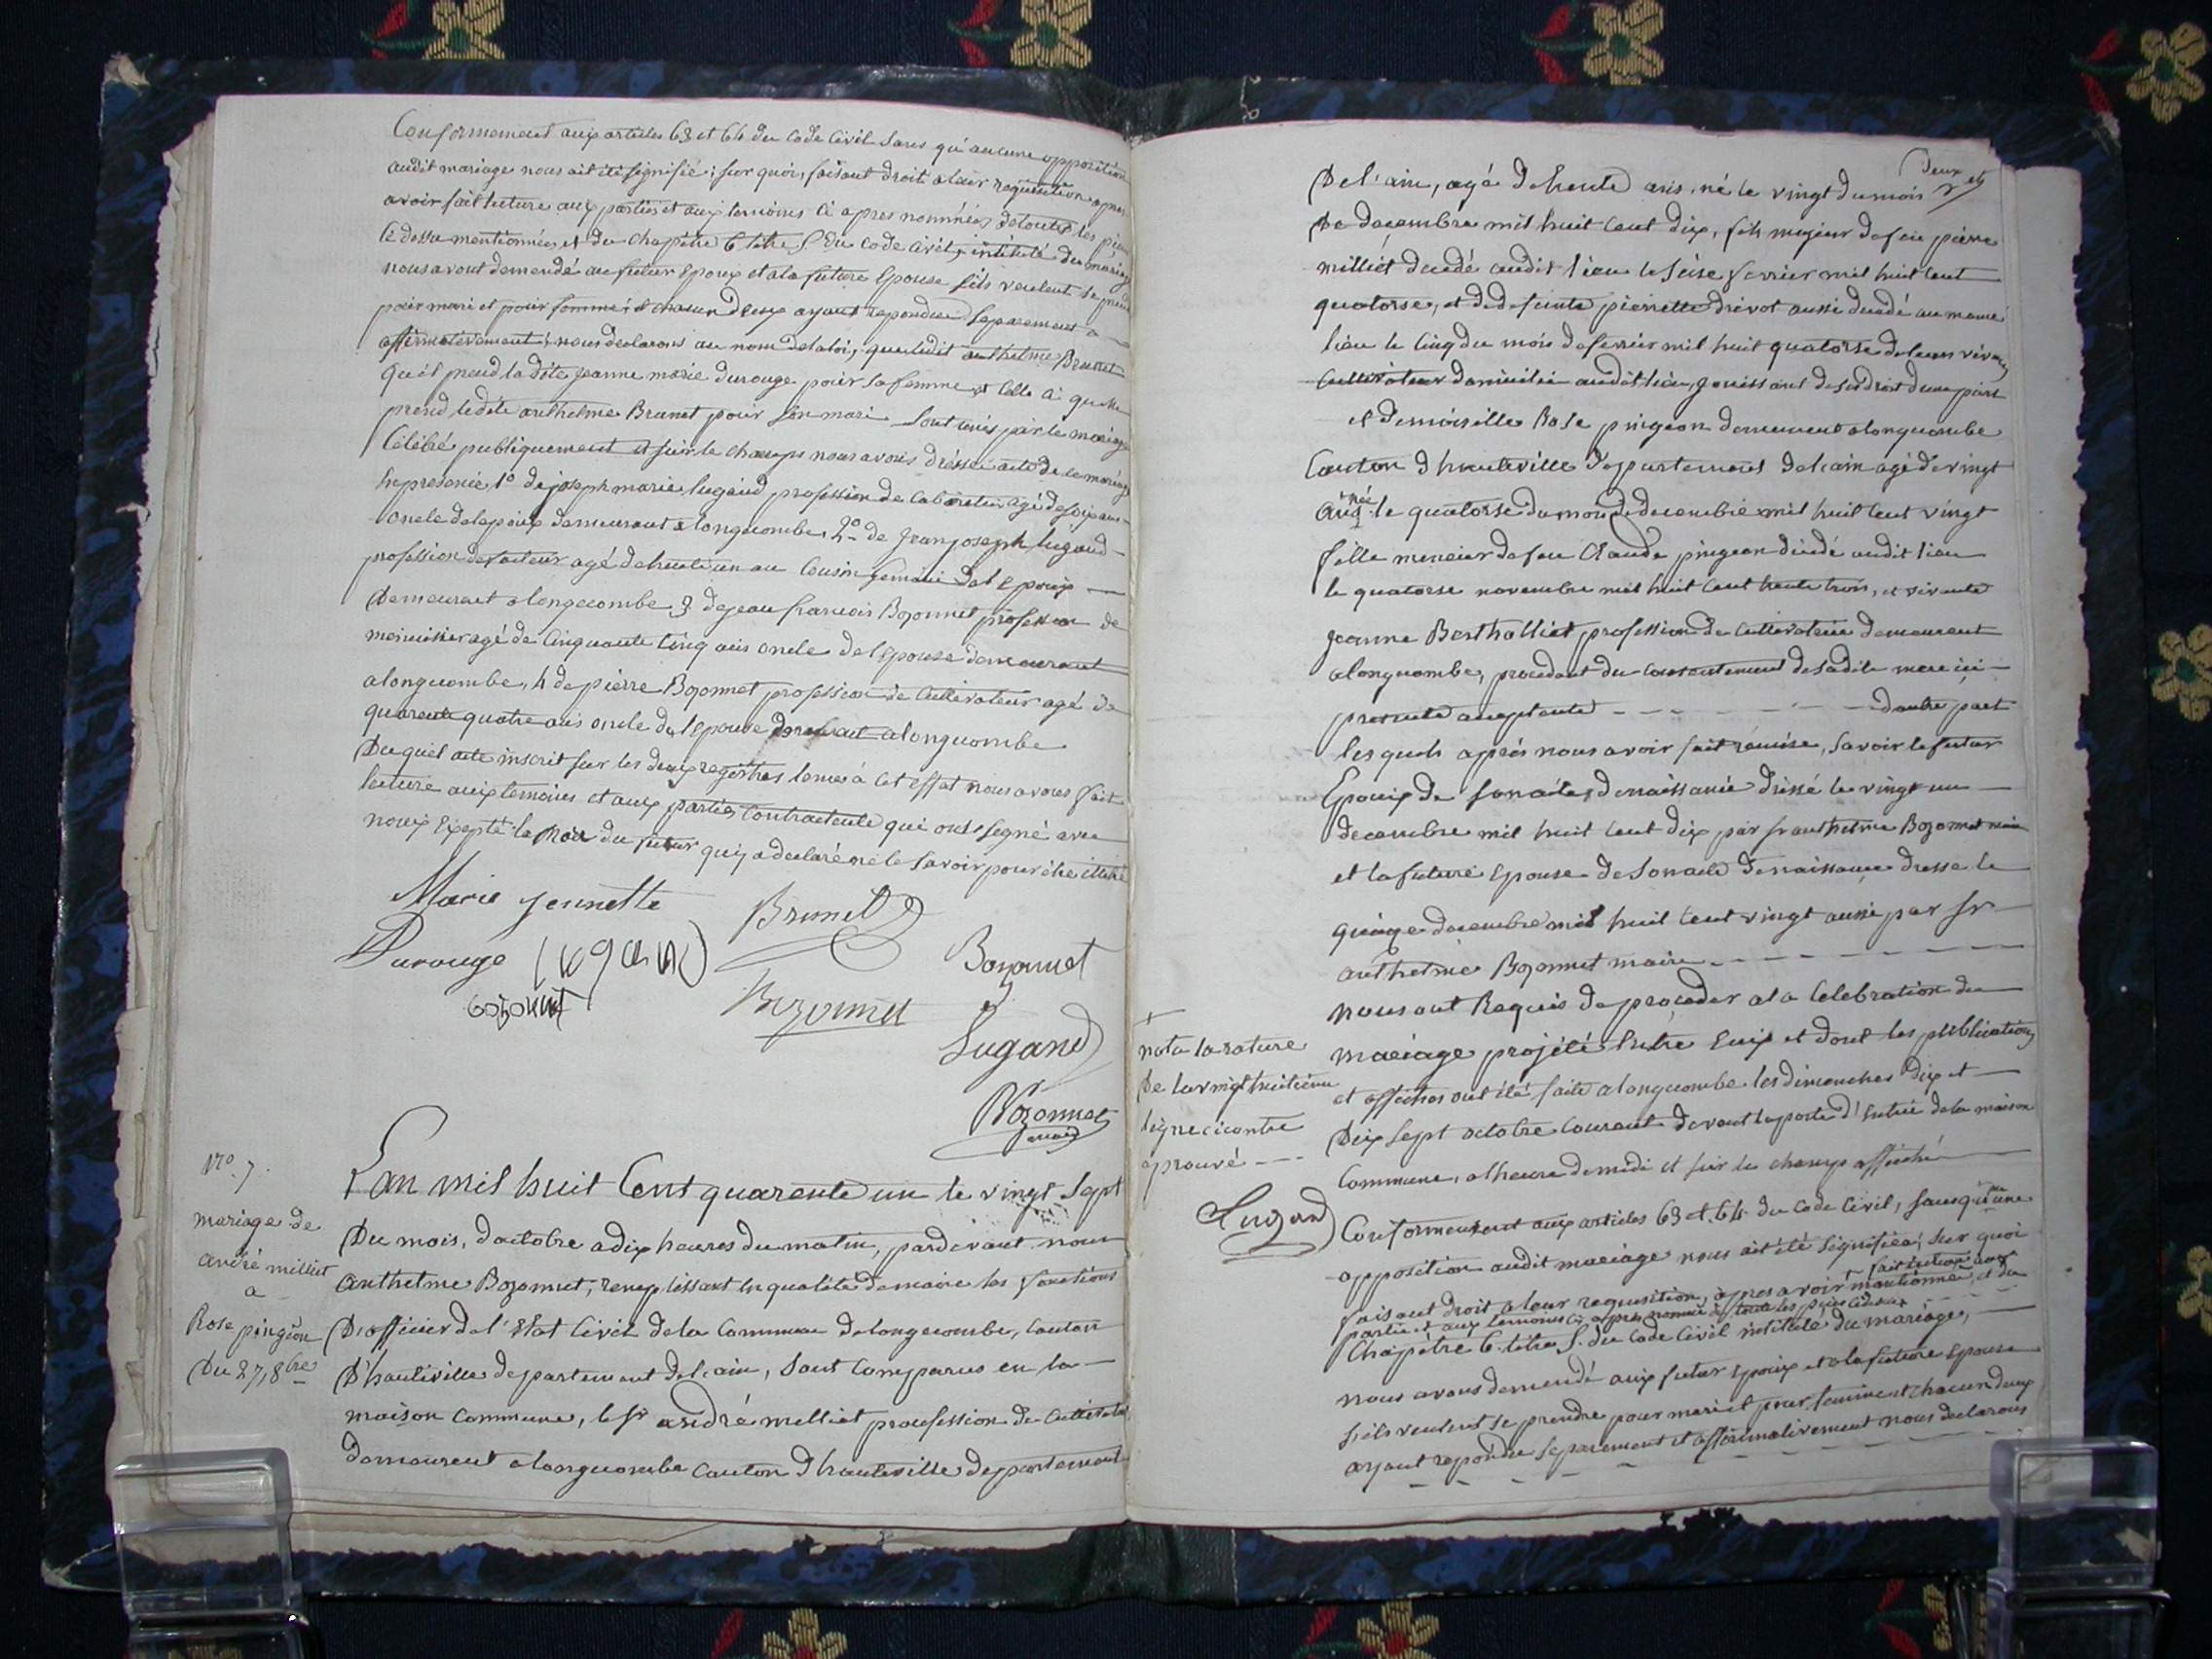 Conformement aux articles 63 et 64 du Code Civil sans qu'aucune opposition
audit mariage nous ait été signifié; sur quoi, faisant droit a leur requisition apres
avoir fait lecture aux parties et aux temoins ci apres nommées de toutes les
ci dessu mentionnées et du chapitre 6 titre 5 du Code Civil, intitulé du mariage
nous avont demendé au futur Epoux et a la future Epouse s'ils veulent se
pour mari et pour femme; et chacun d'eux ayant repondue separement
affirmativement; nous declarons au nom de la loi, que ledit anthelme Brunet
qu'il prend la dite jeanne marie Durouge pour sa femme et celle ci quelle
prend ledit anthelme Brunet pour son mari sont unis par le mariage
Célébré publiquement et sur le champs nous avons dressé acte de ce mariage
En presence 1° de joseph marie lugand profession de agé de
oncle de lepoux demeurant a longecombe, 2° de jean joseph lugand
profession de agé de trente un an cousin germain de l'epoux
Demeurant a longecombe 3 de jean francois Bozonnet profession de
menuisier agé de cinquante cinq ans oncle de l'epouse demeurant
a longecombe, 4 de pierre Bozonnet profession de cultivateur agé de
quarente quatre ans oncle de l'epouse demeurant a longecombe
Duquel acte inscrit sur les deux registres tenus à cet effet nous avons fait
lecture aux temoins et aux parties contractente qui ont signé avec
noux Exepté la du futur qui a declaré ne le savoir pour être
Marie jeunette
Durouge
Brunet
lugand
Bozonnet
Bozonnet
Bozonnet
Lugand
Bozonnet
maire
N° 7.
mariage de
andré milliet
a
Rose pingeon
Du 27, 8bre
L'an mil huit Cent quarente un le vingt Sept
Du mois, d'octobre a dix heures du matin, pardevant nous
anthelme Bozonnet, remplissant en qualité de maire les fonctions
D'officier de l'Etat Civil de la Commune de longecombe, Canton
D'hauteville departement de l'ain, sont comparus en la
maison commune, le sr andré milliet proufession de
demeurent a longecombe canton d'hauteville departement
Deux et
De l'ain, agé de trente ans, né le vingt du mois
De decembre mil huit cent dix, fils majeur de feu pierre
milliet decedé audit lieu le seise fevrier mil huit cent
quatorse, et de defeinte pierrette drevot aussi decedé au meme
lieu le cinq du mois de fevrier mil huit quatorse de leurs
cultivateur domicilié audit lieu, jouissant de ses droit d'une part
et Demoiselle Rose pingeon demeurent a longecombe
Canton d'hauteville Departement de l'ain agé de vingt
ans née le quatorse du mois de decembre mil huit cent vingt
fille mineure de feu Claude pingeon decedé audit lieu
le quatorse novembre mil huit cent trente trois, et vivante
jeanne Berthelliet profession de cultivateur demeurent
a longecombe, procedant du consentement de sadite mere ici
presente d'autre part
les quels après nous avoir fait remise, Savoir le futur
Epoux de son acte de naissance dressé le vingt un
decembre mil huit cent dix par sr anthelme Bozonnet maire
et la future Epouse de son acte de naissance dresse le
quinze decembre mil huit cent vingt aussi par sr
anthelme Bozonnet maire
nous ont Requis de proceder a la Celebration du
mariage projeté Entre Eux et dont les publications
et affiches ont été faite a longecombe les dimenches dix et
Dix sept octobre courent devant la porte d'Entrée de la maison
Commune, a l'heure de midi et sur le champs affiché
Conformement aux articles 63 et 64 du Code Civil, sans qu'aucune
opposition audit mariage nous ait été signifiée; sur quoi
faisant droit a leur requisition, apres avoir mentionnée et du
fait lecture aux
partie et aux temoins ci apres nommé de toute les pieces ci dessus
Chapitre 6. titre 5. du Code Civil intitulé du mariage,
nous avons demendé aux futur epoux et a la future epouse
s'ils veulent se prendre pour mari et pour femme et chacun deux
ayant repondu separement et affirmativement nous declarons
+
nota la rature
De la vingt huitieme
ligne ci contre
aprouvé
Lugand